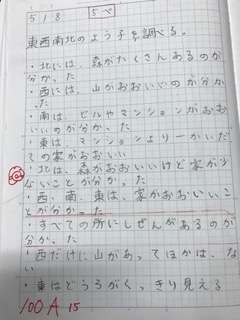 518 5ペ
東西南北のよう子を調べる。
・北には、森がたくさんあるのが
分かった
・西には、山がおおいのが分かっ
た
・南は、ビルやマンションがおお
いいのが分かった
・東は、マンションより一かいだ
ての家がおおい
・北は、森がおおいけど家が少
ないことが分かった
・西、南、東は、家がおおいこ
とが分かった
・すべての所にしぜんがあるのが
分かった
・西だけに山があってほかは、な
い
・東はどうろがくっきり見える
100A 15